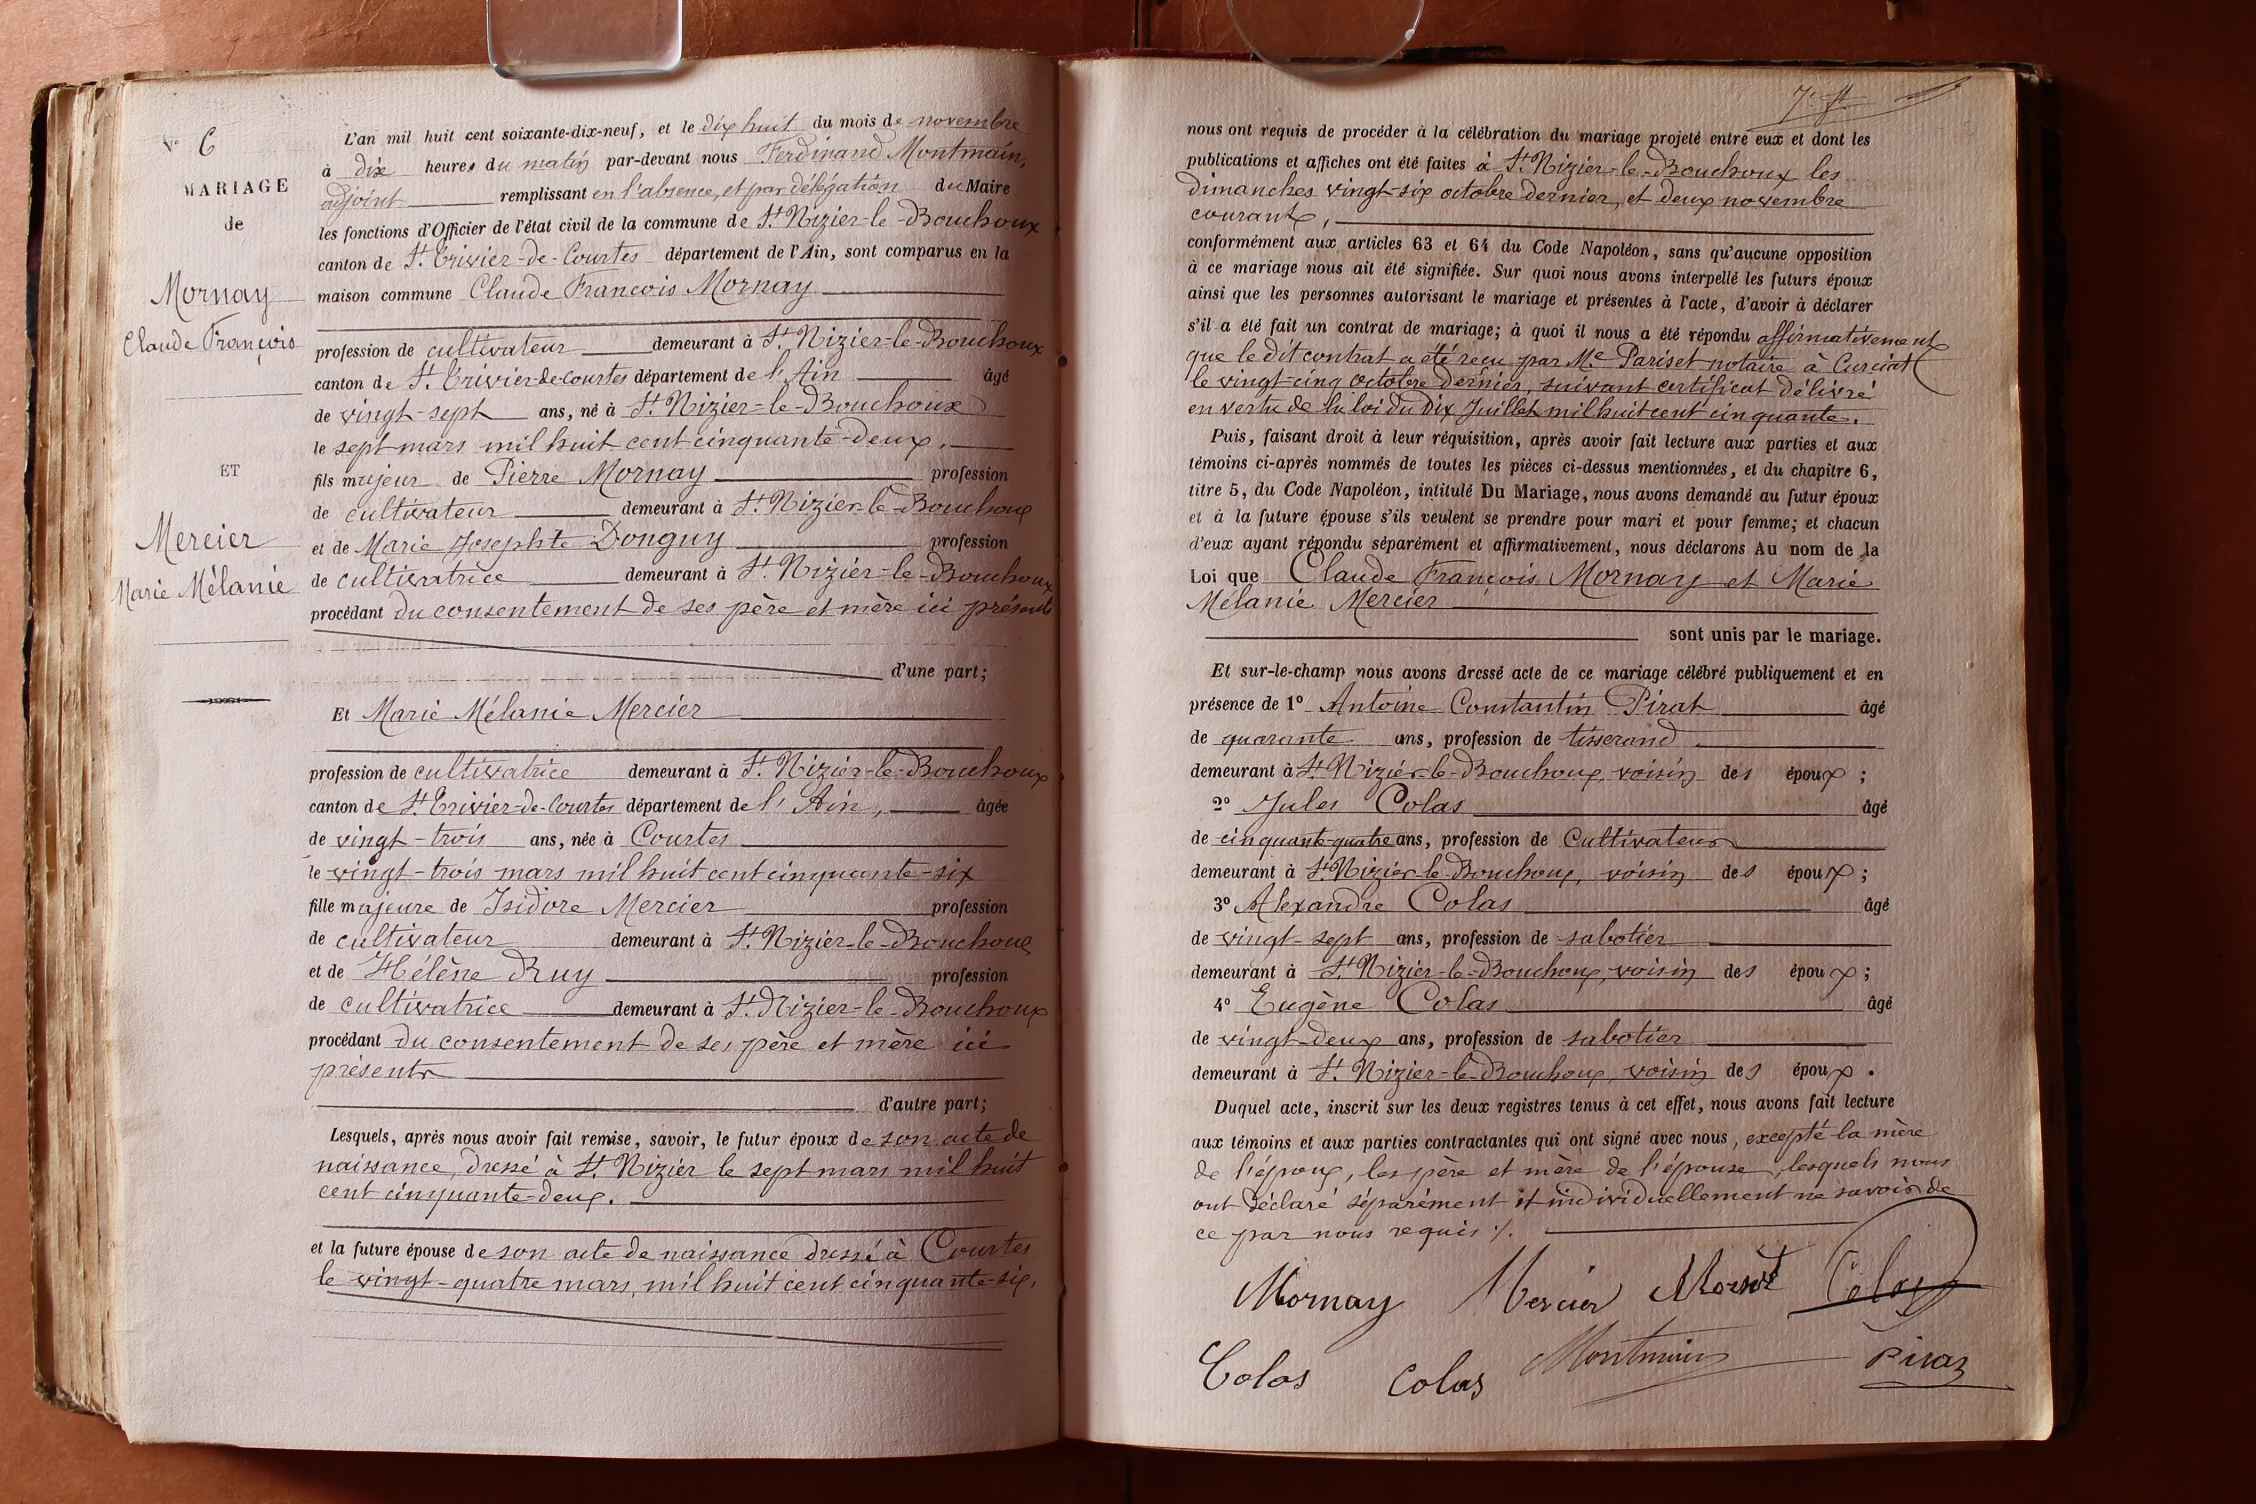 No 6
MARIAGE
de
Mornay
Claude François
ET
Mercier
Marie Mélanie
L'an mil huit cent soixante-dix-neuf, et le dix huit du mois de novembre
à dix heures du matin par-devant nous Ferdinand Montmain,
adjoint remplissant en l'absence, et par délégation du Maire
les fonctions d'Officier de l'état civil de la commune de St Nizier-le-Bouchoux
canton de St Trivier-de-Courtes département de l'Ain, sont comparus en la
maison commune Claude François Mornay
profession de cultivateur demeurant à St Nizier-le-Bouchoux
canton de St Trivier-de-Courtes département de l'Ain âgé
de vingt-sept ans, né à St Nizier-le-Bouchoux
le sept mars mil huit cent cinquante-deux,
fils majeur de Pierre Mornay profession
de cultivateur demeurant à St Nizier-le-Bouchoux
et de Marie Josephte Donguy profession
de cultivatrice demeurant à St Nizier-le-Bouchoux
procédant du consentement de ses père et mère ici présents
d'une part;
Et Marie Mélanie Mercier
profession de cultivatrice demeurant à St Nizier-le-Bouchoux
canton de St Trivier-de-Courtes département de l'Ain, âgée
de vingt-trois ans, née à Courtes
le vingt-trois mars mil huit cent cinquante-six
fille majeure de Isidore Mercier profession
de cultivateur demeurant à St Nizier-le-Bouchoux
et de Hélène Ruy profession
de cultivatrice demeurant à St Nizier-le-Bouchoux
procédant du consentement de ses père et mère ici
présents
d'autre part;
Lesquels, après nous avoir fait remise, savoir, le futur époux de son acte de
naissance, dressé à St Nizier le sept mars mil huit
cent cinquante-deux.
et la future épouse de son acte de naissance dressé à Courtes
le vingt-quatre mars, mil huit cent cinquante-six,
nous ont requis de procéder à la célébration du mariage projeté entre eux et dont les
publications et affiches ont été faites à St Nizier-le-Bouchoux les
dimanches vingt-six octobre dernier, et deux novembre
courant,
conformément aux articles 63 et 64 du Code Napoléon, sans qu'aucune opposition
à ce mariage nous ait été signifiée. Sur quoi nous avons interpellé les futurs époux
ainsi que les personnes autorisant le mariage et présentes à l'acte, d'avoir à déclarer
s'il a été fait un contrat de mariage; à quoi il nous a été répondu affirmativement
que le dit contrat a été reçu par Me Pariset notaire à Curciat
le vingt-cinq octobre dernier, suivant certificat délivré
en vertu de la loi du dix Juillet mil huit cent cinquante.
Puis, faisant droit à leur réquisition, après avoir fait lecture aux parties et aux
témoins ci-après nommés de toutes les pièces ci-dessus mentionnées, et du chapitre 6,
titre 5, du Code Napoléon, intitulé Du Mariage, nous avons demandé au futur époux
et à la future épouse s'ils veulent se prendre pour mari et pour femme; et chacun
d'eux ayant répondu séparément et affirmativement, nous déclarons Au nom de la
Loi que Claude François Mornay et Marie
Mélanie Mercier
sont unis par le mariage.
Et sur-le-champ nous avons dressé acte de ce mariage célébré publiquement et en
présence de 1o Antoine Constantin Pirat âgé
de quarante ans, profession de tisserand
demeurant à St Nizier-le-Bouchoux, voisin des époux;
2o Jules Colas âgé
de cinquante-quatre ans, profession de Cultivateur
demeurant à St Nizier-le-Bouchoux, voisin des époux;
3o Alexandre Colas âgé
de vingt-sept ans, profession de sabotier
demeurant à St Nizier-le-Bouchoux, voisin des époux;
4o Eugène Colas âgé
de vingt-deux ans, profession de sabotier
demeurant à St Nizier-le-Bouchoux, voisin des époux.
Duquel acte, inscrit sur les deux registres tenus à cet effet, nous avons fait lecture
aux témoins et aux parties contractantes qui ont signé avec nous, excepté la mère
de l'époux, les père et mère de l'épouse, lesquels nous
ont déclaré séparément et individuellement ne savoir de
ce par nous requis ./.
Mornay Mercier Colas
Colas Colas Montmain Pirat